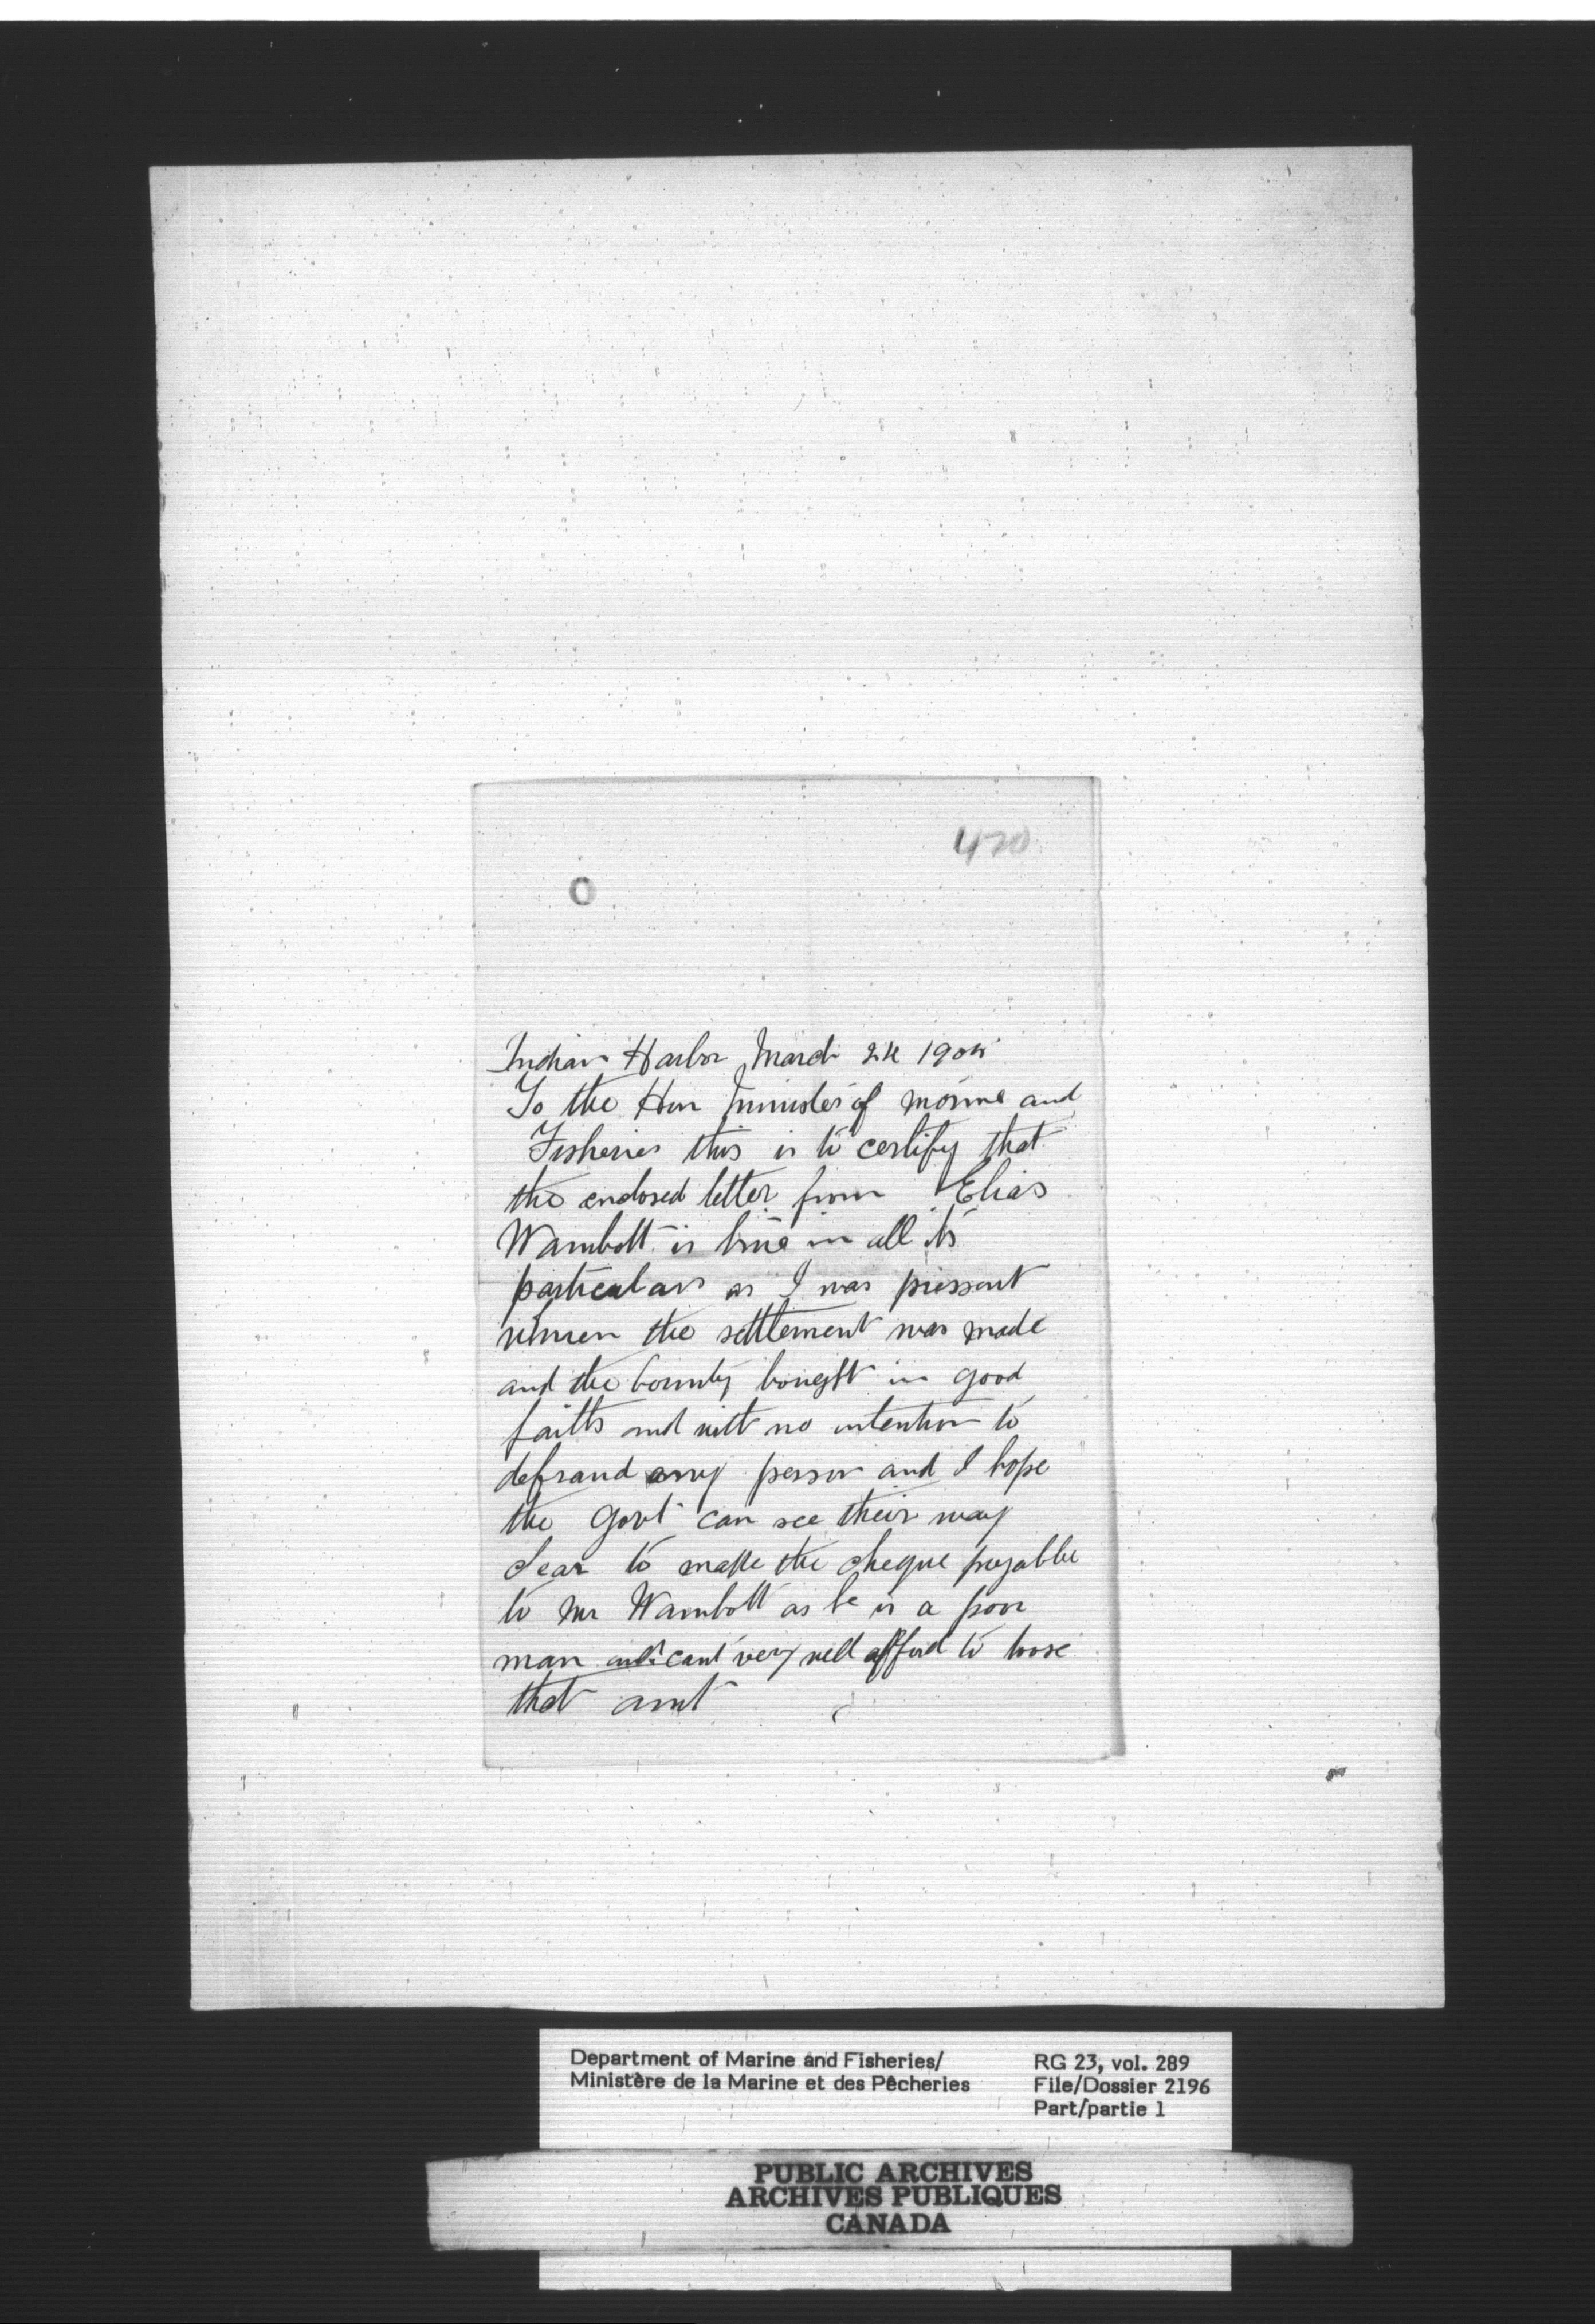 470
Indian Harbor March 24 1904
To the Hon Minister of Marine and
Fisheries this is to certify that
the enclosed letter from Elias
Wambolt is true in all its
particulars as I was pressent
when the settlement was made
and the bounty bought in good
faith and with no intention to
defraud any person and I hope
the Govt can see their way
clear to make the cheque payable
to Mr Wambolt as he is a poor
man and cant very well afford to loose
that amt
Department of Marine and Fisheries/
Ministère de la Marine et des Pêcheries
RG 23, vol. 289
File/Dossier 2196
Part/partie 1
PUBLIC ARCHIVES
ARCHIVES PUBLIQUES
CANADA